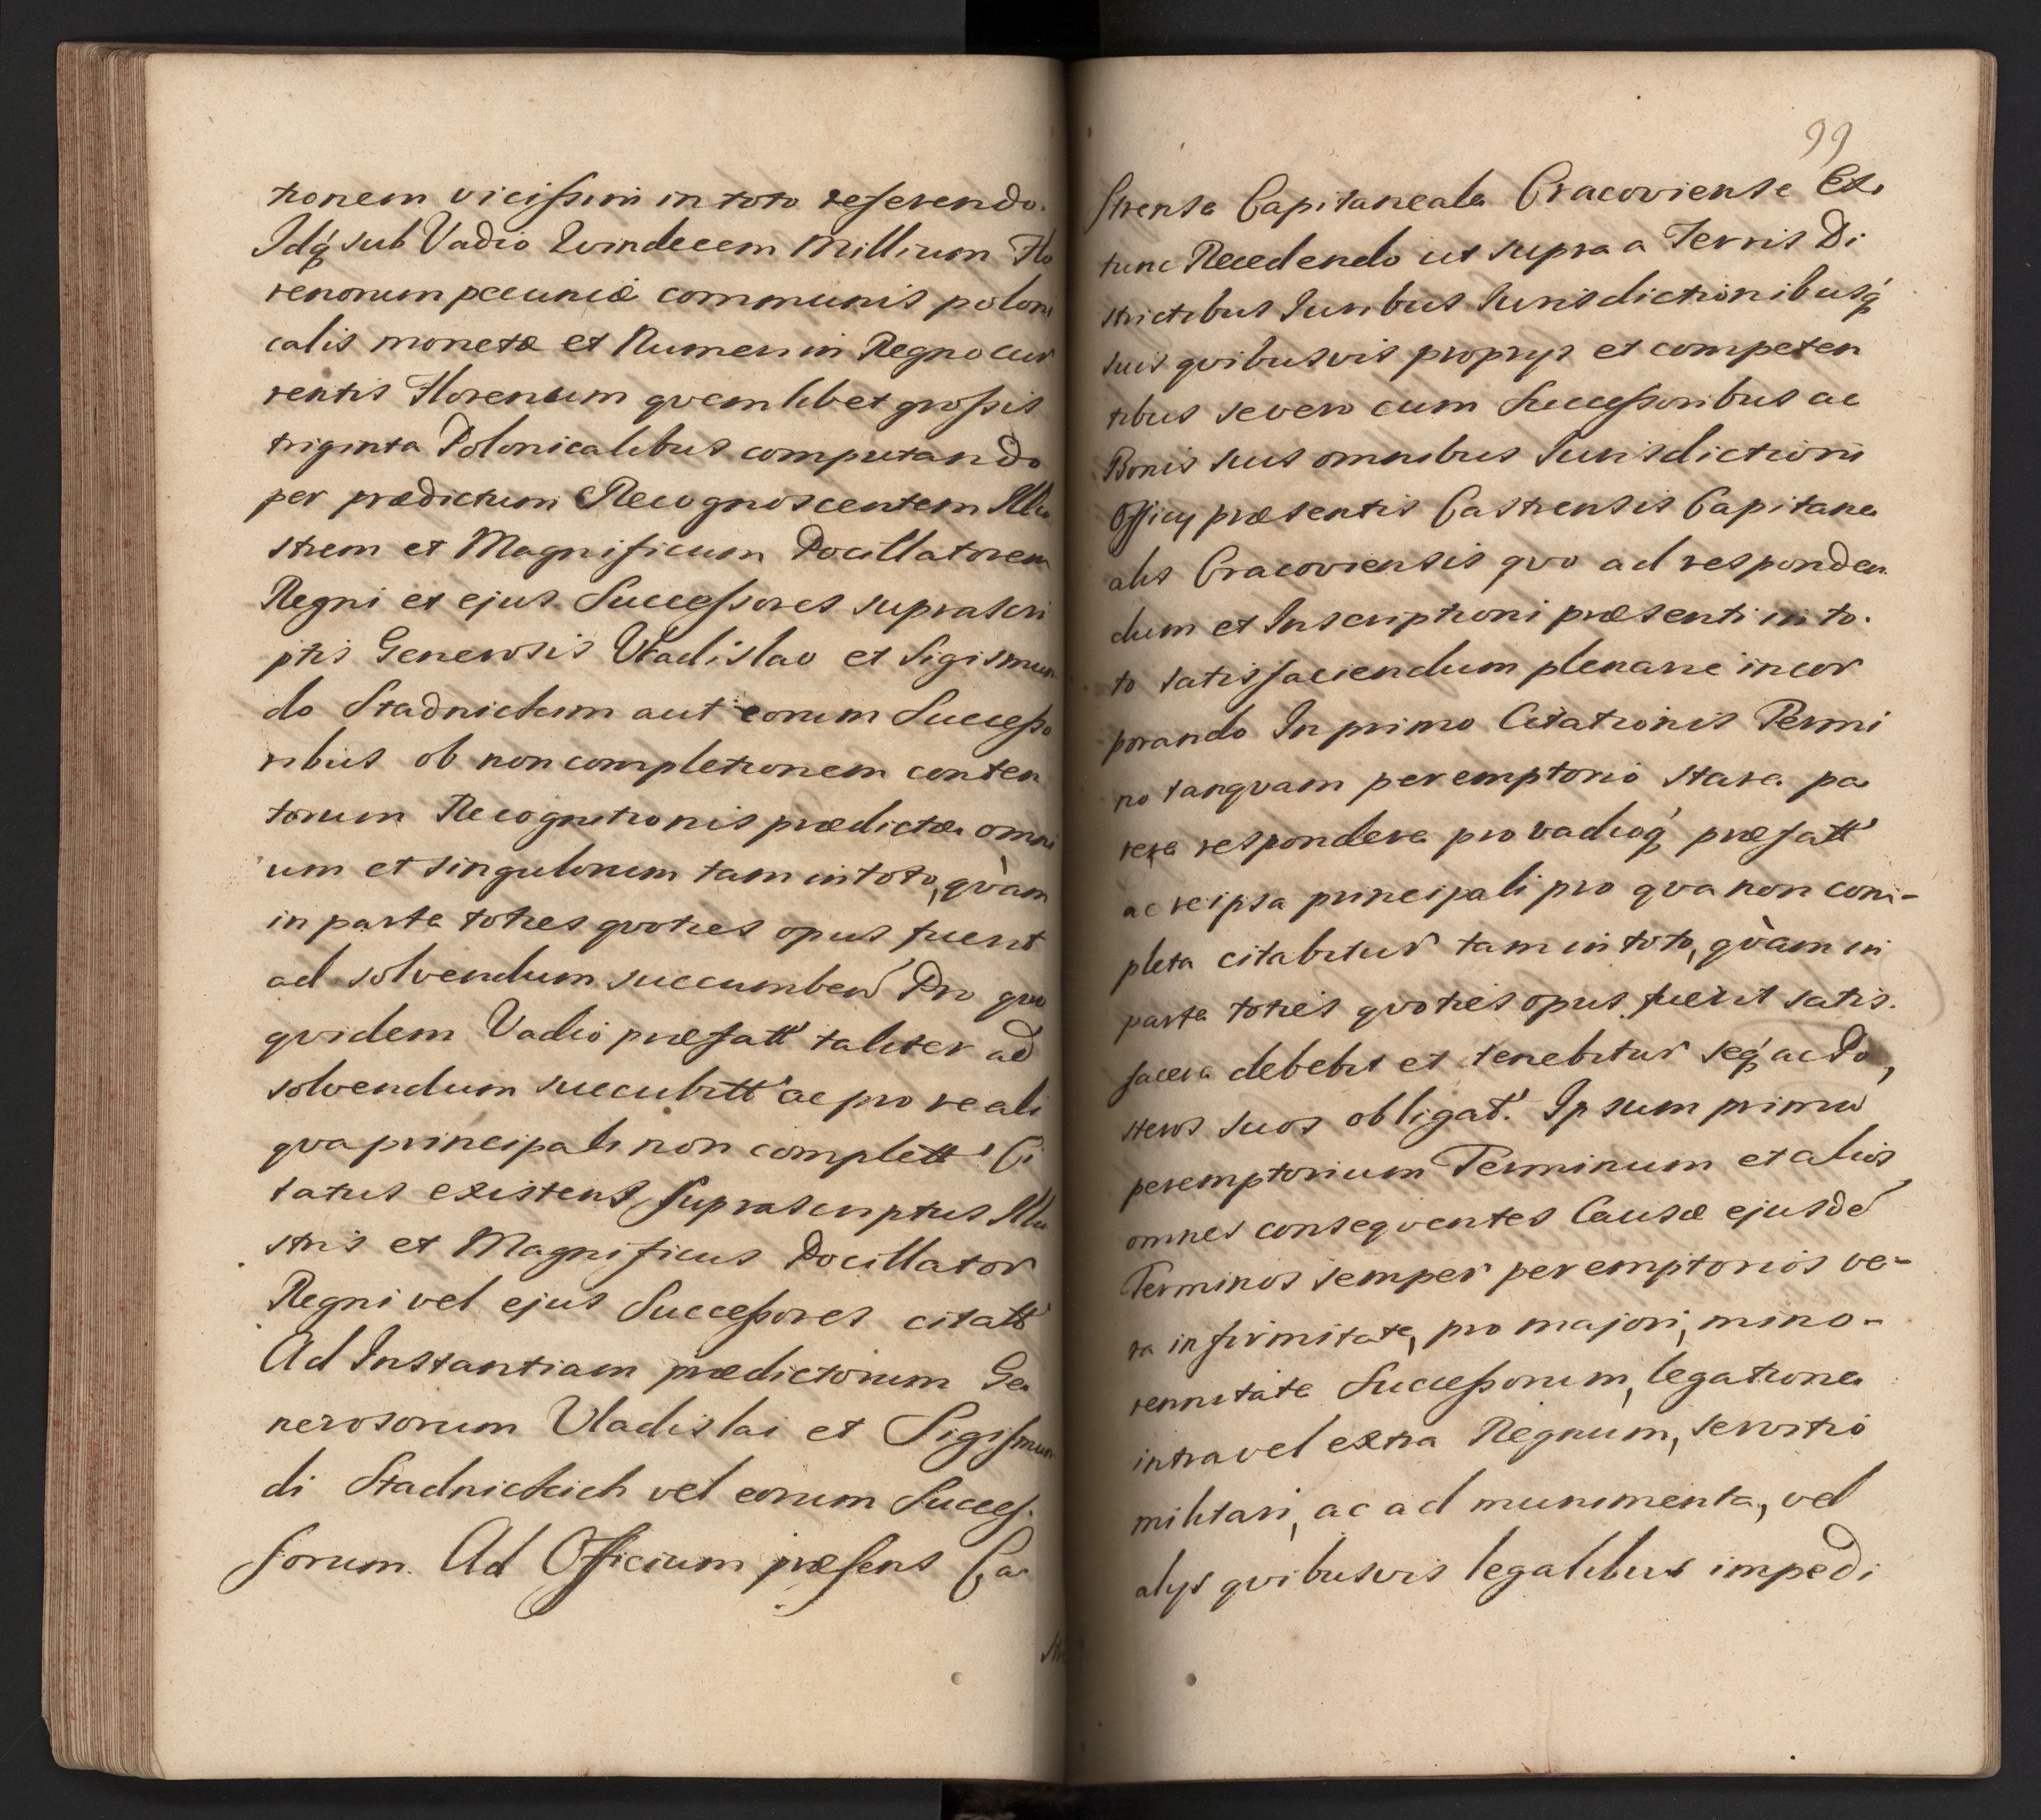 tionem vicissim in toto referendo.
Idq́ sub Vadio Quindecem Millium Flo
renorum pecuniæ communis poloni
calis monetæ et Numeri in Regno cur
rentis Florenum qvemlibet grossis
triginta Polonicalibus computando
per prædictum Recognoscentem Illu
strem et Magnificum Pocillatorem
Regni et ejus Successores suprascri
ptis Generosis Vladislao et Sigismun
do Stadnickim aut eorum Successo
ribus ob non completionem conten
torum Recognitionis prædictæ omni
um et singulorum tam in toto, qvàm
in parte toties qvoties opus fuerit
ad solvendum succumben̄ Pro qvo
qvidem Vadio præfatt' taliter ad
solvendum succubitt' ac pro re ali
qva principali non complett' Ci
tatus existens suprascriptus Illu
stris et Magnificus Pocillator
Regni vel ejus Successores citatt'
Ad Instantiam prædictorum Ge
nerosorum Vladislai et Sigismun
di Stadnickich vel eorum Succes.
sorum. Ad Officium præsens Ca
st
99
strense Capitaneale Cracoviense Ex
tunc Recedendo ut supra a Terris Di
strictibus Iuribus Iurisdictionibusq́
suis qvibusvis proprys et competen
tibus se vero cum Successoribus ac
Bonis suis omnibus Iurisdictioni
Officy præsentis Castrensis Capitane
alis Cracoviensis qvo ad responden
dum et Inscriptioni præsenti in to.
to satisfaciendum plenarie incor
porando In primo Citationis Termi
no tanqvam peremptorio stare pa
rere respondere pro vadioq́ præfatt'
ac re ipsa principali pro qva non com-
pleta citabitur tam in toto, qvàm in
parte toties qvoties opus fuerit satis.
facere debebit et tenebitur seq́ ac Po,
steros suos obligat'. Ipsum primū
peremptorium Terminum et alios
omnes conseqventes Causæ ejusdē
Terminos semper peremptorios ve-
ra infirmitate, pro majori, mino-
rennitate Successorum, legatione
intra vel extra Regnum, servitio
militari, ac ad munimenta, vel
alys qvibusvis legalibus impedi